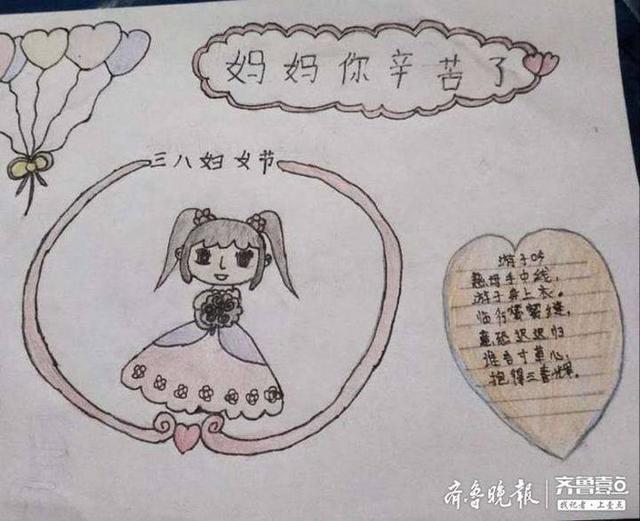 妈妈你辛苦了
三八妇女节
游子吟
慈母手中线,
游子身上衣。
临行密密缝,
意恐迟迟归
谁言寸草心,
报得三春晖。
齐鲁晚报
齐鲁壹点
我记者·上壹点